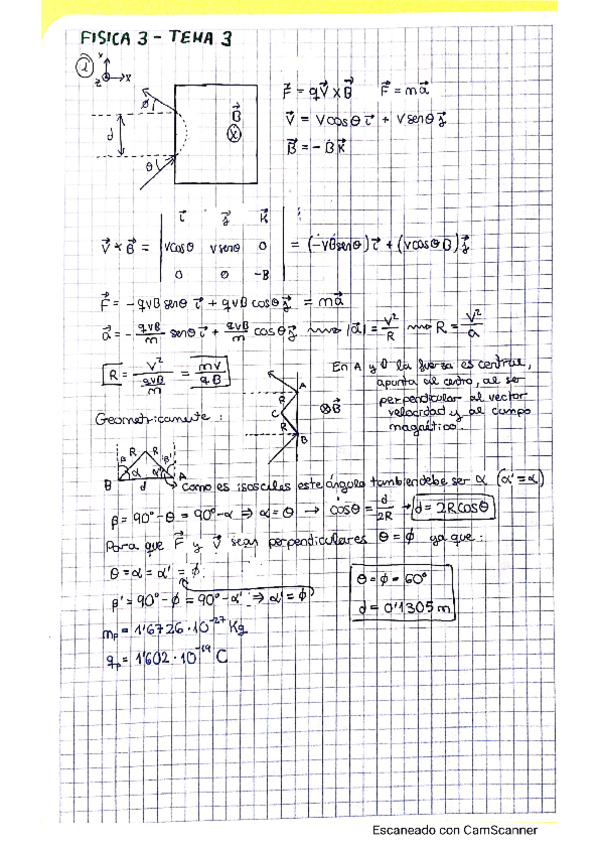 FISICA 3 - TEMA 3
1
y
z x
φ
d
θ
B⃗
F⃗ = qV⃗ x B⃗ F⃗ = ma⃗
V⃗ = Vcosθ i⃗ + Vsenθ j⃗
B⃗ = -B k⃗
i⃗ j⃗ k⃗
V⃗ x B⃗ = | vcosθ vsenθ 0 | = (-vBsenθ) i⃗ + (vcosθ B) j⃗
0 0 -B
F⃗ = -qvB senθ i⃗ + qvB cosθ j⃗ = ma⃗
a⃗ = - qvB/m senθ i⃗ + qvB/m cosθ j⃗ → |a⃗| = v²/R → R = v²/a
R = v²/(qvB/m) = mv/qB
En A y la fuerza es central,
apunta al centro, al ser
perpendicular al vector
velocidad y al campo
magnético.
A
R
C
R
B
⊗B⃗
Geometricamente:
R R
β β'
α α'
B d A
Como es isosceles este ángulo tambien debe ser α (α' = α)
β = 90° - θ = 90° - α ⇒ α = θ → cosθ = d/2R → d = 2Rcosθ
Para que F⃗ y V⃗ sean perpendiculares θ = φ ya que:
θ = α = α' = φ
β' = 90° - φ = 90° - α' ⇒ α' = φ
θ = φ = 60°
d = 0'1305 m
mₚ = 1'6726·10⁻²⁷ Kg
qₚ = 1'602·10⁻¹⁹ C
Escaneado con CamScanner